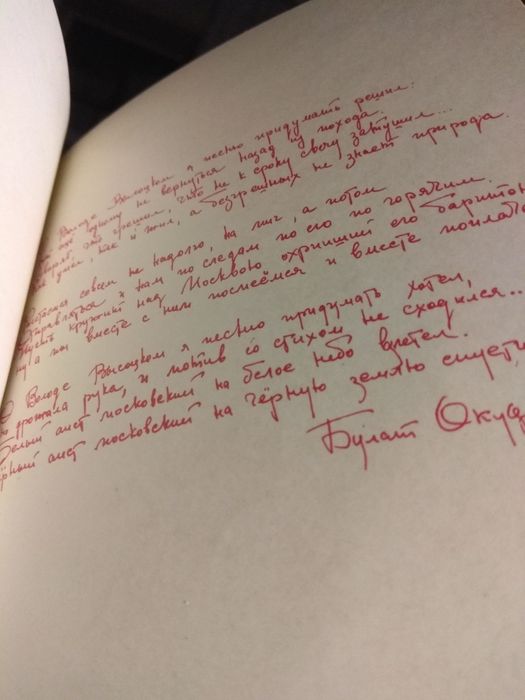 Володе Высоцком я песню придумать решил:
ещё одному не вернуться назад из похода.
что грешил, что не к сроку свечу затушил...
умел, так и жил, а безгрешных не знает природа.
совсем не надолго, на миг, а потом
отправляться и нам по следам по его по горячим.
Пусть кружит над Москвою охрипший его баритон
ну а мы вместе с ним посмеёмся и вместе поплаче
О Володе Высоцком я песню придумать хотел,
но дрожала рука, и мотив со стихом не сходился...
Белый аист московский на белое небо взлетел.
чёрный аист московский на чёрную землю спусти
Булат Окудж